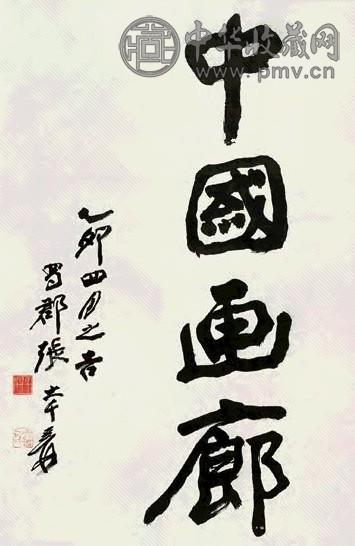 中华收藏网
www.pmv.cn
中國画廊
乙卯四月之吉
蜀郡張大千爰